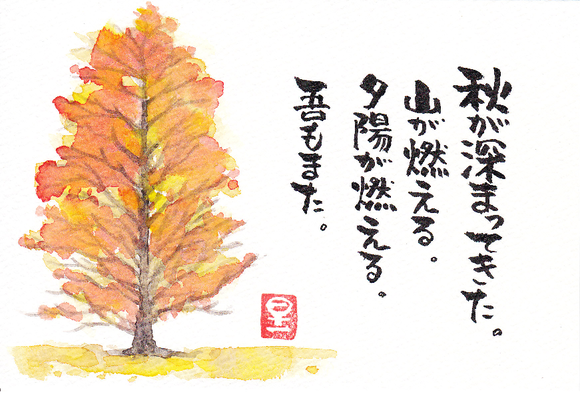 秋が深まってきた。
山が燃える。
夕陽が燃える。
吾もまた。